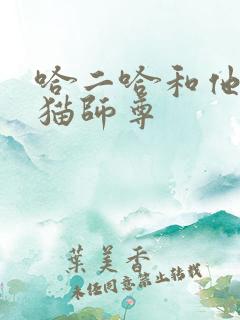 哈二哈和他
猫師尊
葉美香
未经同意禁止转载